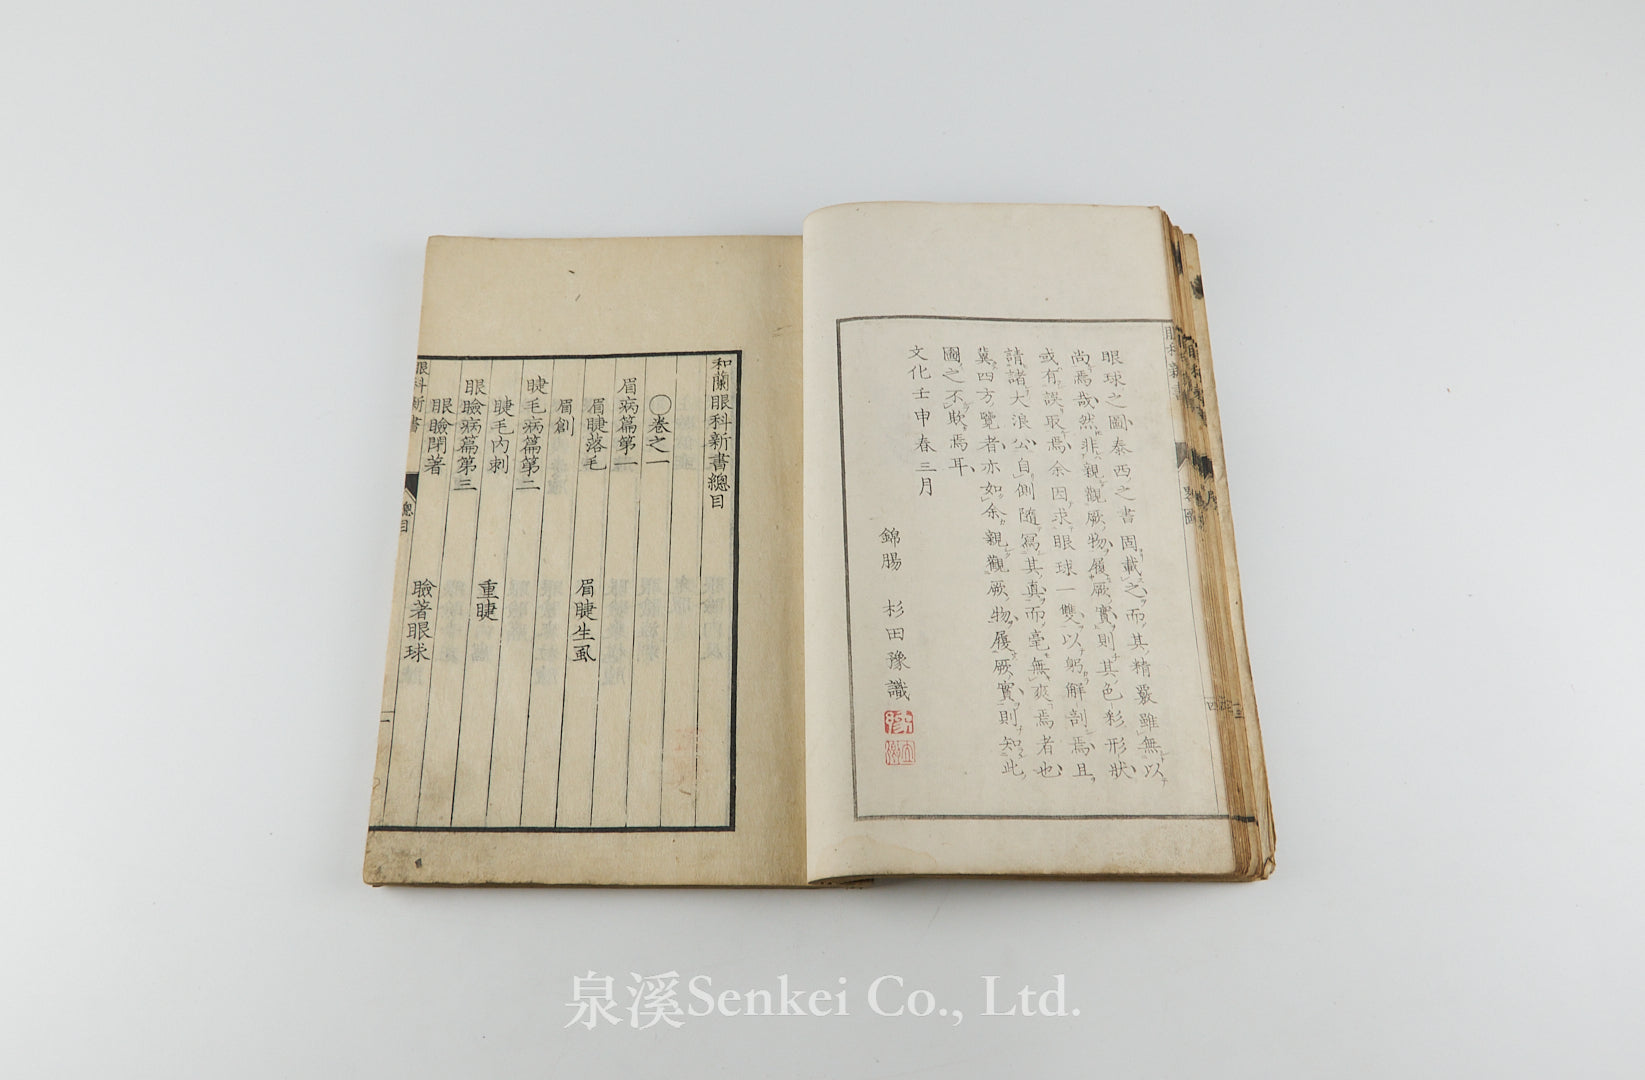 眼球之圖泰西之書固載之而其精嚴雖無以
尚焉哉然非親觀厥物履厥實則其色彩形狀
或有誤取焉余因求眼球一雙以躬解剖焉且
請諸大浪公自側隨寫其真而毫無爽焉者也
冀四方覽者亦如余親觀厥物履厥實則知此
圖之不欺焉耳
文化壬申春三月
錦腸 杉田豫識
和蘭眼科新書總目
〇卷之一
眉病篇第一
眉睫落毛 眉睫生虱
眉創
睫毛病篇第二
睫毛內刺 重睫
眼瞼病篇第三
眼瞼閉著 瞼著眼球
眼科新書 總目 一
泉溪Senkei Co., Ltd.